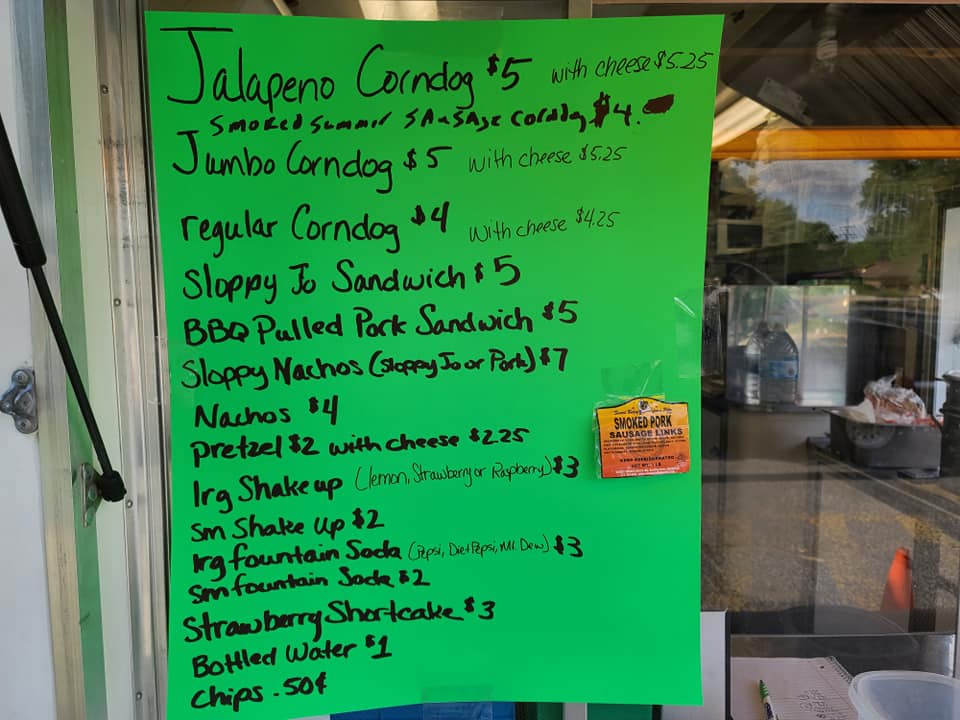 Jalapeno Corndog $5 with cheese $5.25
Smoked Summer SAuSAge Corndog $4.
Jumbo Corndog $5 with cheese $5.25
regular Corndog $4 with cheese $4.25
Sloppy Jo Sandwich $5
BBQ Pulled Pork Sandwich $5
Sloppy Nachos (Sloppy Jo or Pork) $7
Nachos $4
Pretzel $2 with cheese $2.25
lrg Shake up (lemon, Strawberry or Raspberry) $3
sm Shake Up $2
lrg fountain Soda (Pepsi, Diet Pepsi, Mt. Dew) $3
sm fountain Soda $2
Strawberry Shortcake $3
Bottled Water $1
Chips .50¢
SMOKED PORK
SAUSAGE LINKS
KEEP REFRIGERATED
NET WT. 1 LB